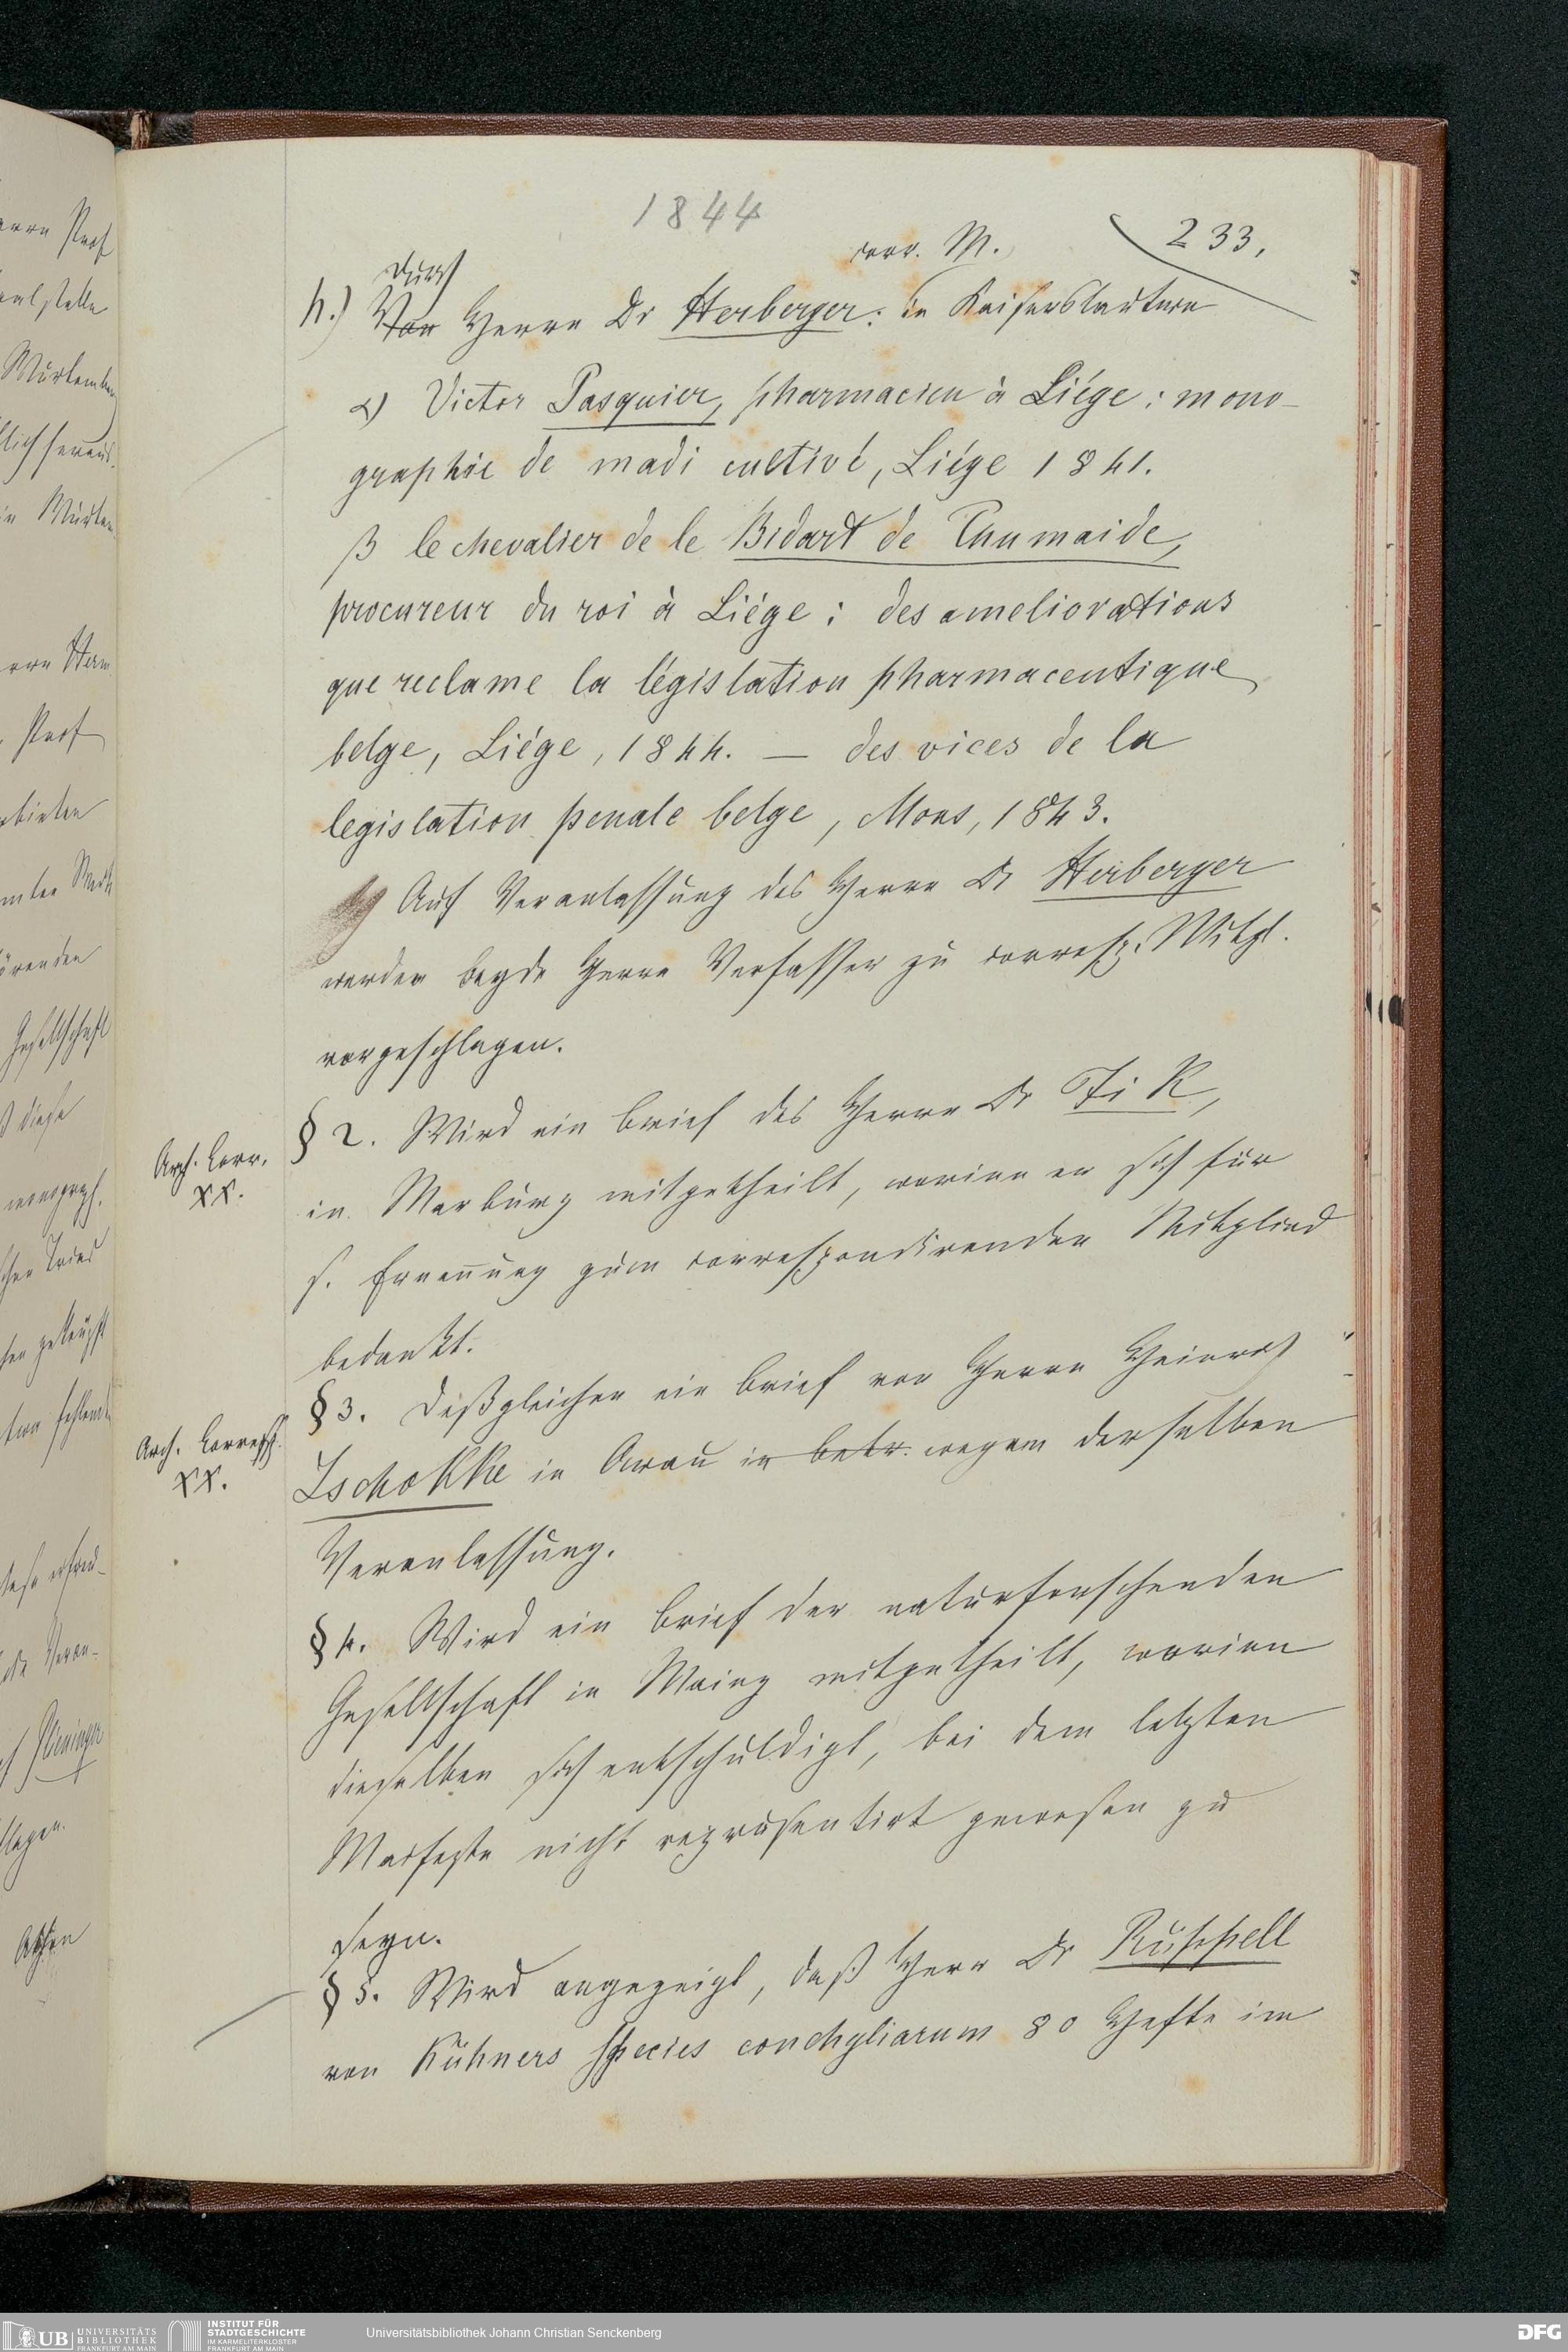 1844
233,
corr. M.
durch
h.) Von Herrn Dr Herberger: in Kaiserslautern
α) Victor Pasquier, pharmacien à Liége: mono-
graphie de madi cultivé, Liége 1841.
β le chevalier de le Bidart de Thumaide,
procureur du roi à Liége: des ameliorations
que reclame la législation pharmaceutique
belge, Liége, 1844. — des vices de la
legislation penale belge, Mons, 1843.
Auf Veranlassung des Herrn Dr Herberger
werden beyde Herrn Verfasser zu corresp. Mitgl.
vorgeschlagen.
§ 2. Wird ein Brief des Herrn Dr Fi K,
Arch. Corr.
XX.
in Marburg mitgetheilt, worinn er sich für
s. Ernenung zum correspondirenden Mitglied
bedankt.
§ 3. Deßgleichen ein Brief von Herrn Heinrich
Arch. Corresp.
XX.
Zschokke in Arau in betr. wegen derselben
Veranlassung.
§ 4. Wird ein Brief der naturforschenden
Gesellschaft in Mainz mitgetheilt, worinn
dieselben sich entschuldigt, bei dem letzten
Maifeste nicht repräsentirt gewesen zu
seyn.
§ 5. Wird angezeigt, daß Herr Dr Rüppell
von Kühners Species conchyliarum 80 Hefte im
UB UNIVERSITÄTS
BIBLIOTHEK
FRANKFURT AM MAIN
INSTITUT FÜR
STADTGESCHICHTE
IM KARMELITERKLOSTER
FRANKFURT AM MAIN
Universitätsbibliothek Johann Christian Senckenberg
DFG